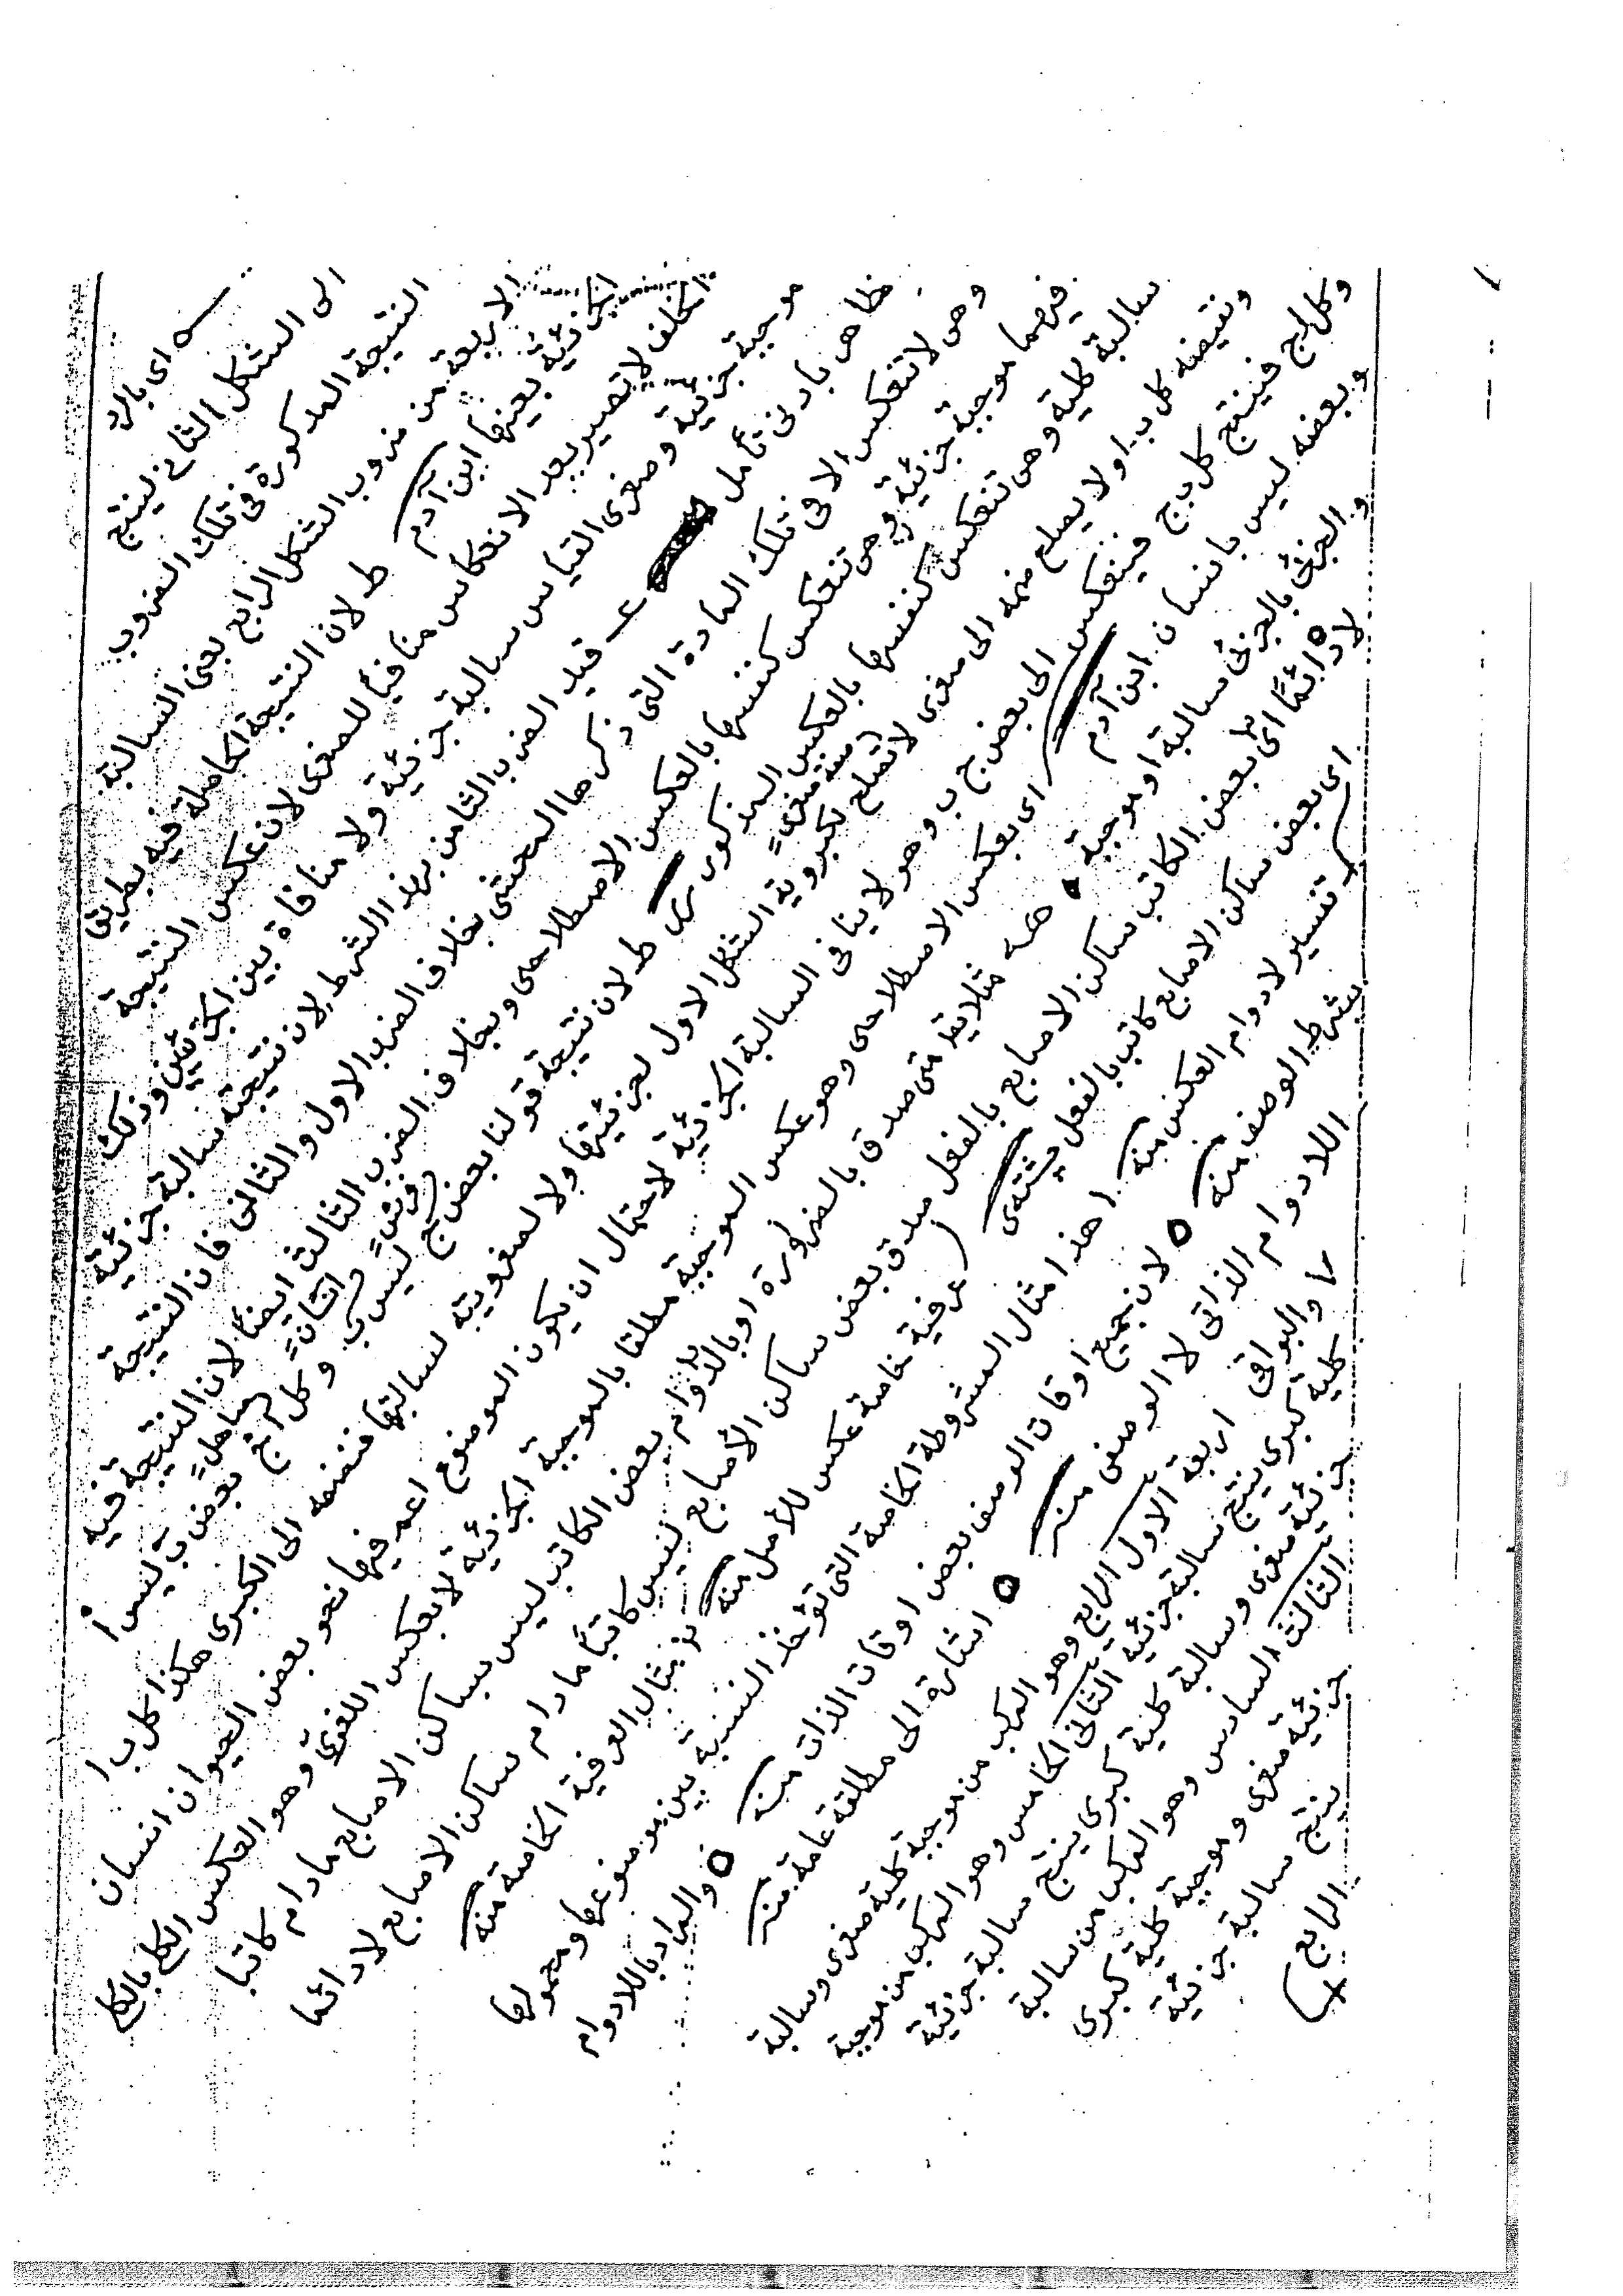 اى بالرد
الى الشكل الثانى لينتج
النتيجة المذكورة فى تلك الضروب
الاربعة من ضروب الشكل الرابع يعنى السالبة
الجزئية بعينها ابن آدم ط لان النتيجة الحاصلة فيه بطريق
الخلف لا تصير بعد الانعكاس منافيًا للصغرى لان عكس النتيجة
موجبة جزئية وصغرى القياس سالبة جزئية ولا منافاة بين الجزئيتين وذلك
ظاهر بادنى تأمل عـ قيد الضرب الثامن بهذا الشرط لان نتيجته سالبة جزئية
وهى لا تنعكس الا فى تلك المادة التى ذكرها المحشى بخلاف الضرب الاول والثانى فان النتيجة
فيهما موجبة جزئية وهى تنعكس كنفسها بالعكس الاصطلاحى وبخلاف الضرب الثالث ايضًا لان النتيجة فيه
سالبة كلية وهى تنعكس كنفسها بالعكس المذكور ط لان نتيجة قولنا بعض ج ليس ب وكل ا ج بعض ب ليس ا
ونقيضه كل ب ا ولا يصلح ضمه الى صغرى لا تصلح لكبروية الشكل الاول لجزئيتها ولا لصغرويته لسالبتها فنضمه الى الكبرى هكذا كل ب ا
وكل ا ج فينتج كل ب ج فينعكس الى بعض ج ب وهو لا ينافى السالبة الجزئية لاحتمال ان يكون الموضوع اعم فيها نحو بعض الحيوان انسان
وبعضه ليس بانسان ابن آدم اى بعكس الاصطلاحى وهو عكس الموجبة مطلقا بالموجبة الجزئية لا بعكس اللغوى وهو العكس الكلى بالكلى
والجزئى بالجزئى سالبة او موجبة مثلا يقا متى صدق بالضرورة او بالدوام بعض الكاتب ليس بساكن الاصابع مادام كاتبا
لا دائمًا اى بعض الكاتب ساكن الاصابع بالفعل صدق بعض ساكن الأصابع ليس كاتبًا مادام ساكن الاصابع لا دائما
اى بعض ساكن الاصابع كاتب بالفعل ينتهى عرفية خاصة عكس للأصل منه مثال العرفية الخاصة منه
تفسير لا دوام العكس منه ا هذا مثال المشروطة الخاصة التى تؤخذ النسبة بين موضوعها ومحمولها
بشرط الوصف منه ه لان جميع اوقات الوصف بعض اوقات الذات منه ه والمراد باللادوام
اللادوام الذاتى لا الوصفى منه ه اشارة الى مطلقة عامة منه
٧ والبواقى اربعة الاول الرابع وهو المركب من موجبة كلية صغرى وسالبة
كلية كبرى ينتج سالبة جزئية الثانى الخامس وهو المركب من موجبة
جزئية صغرى وسالبة كلية كبرى ينتج سالبة جزئية
الثالث السادس وهو المركب من سالبة
جزئية صغرى وموجبة كلية كبرى
ينتج سالبة جزئية
الرابع